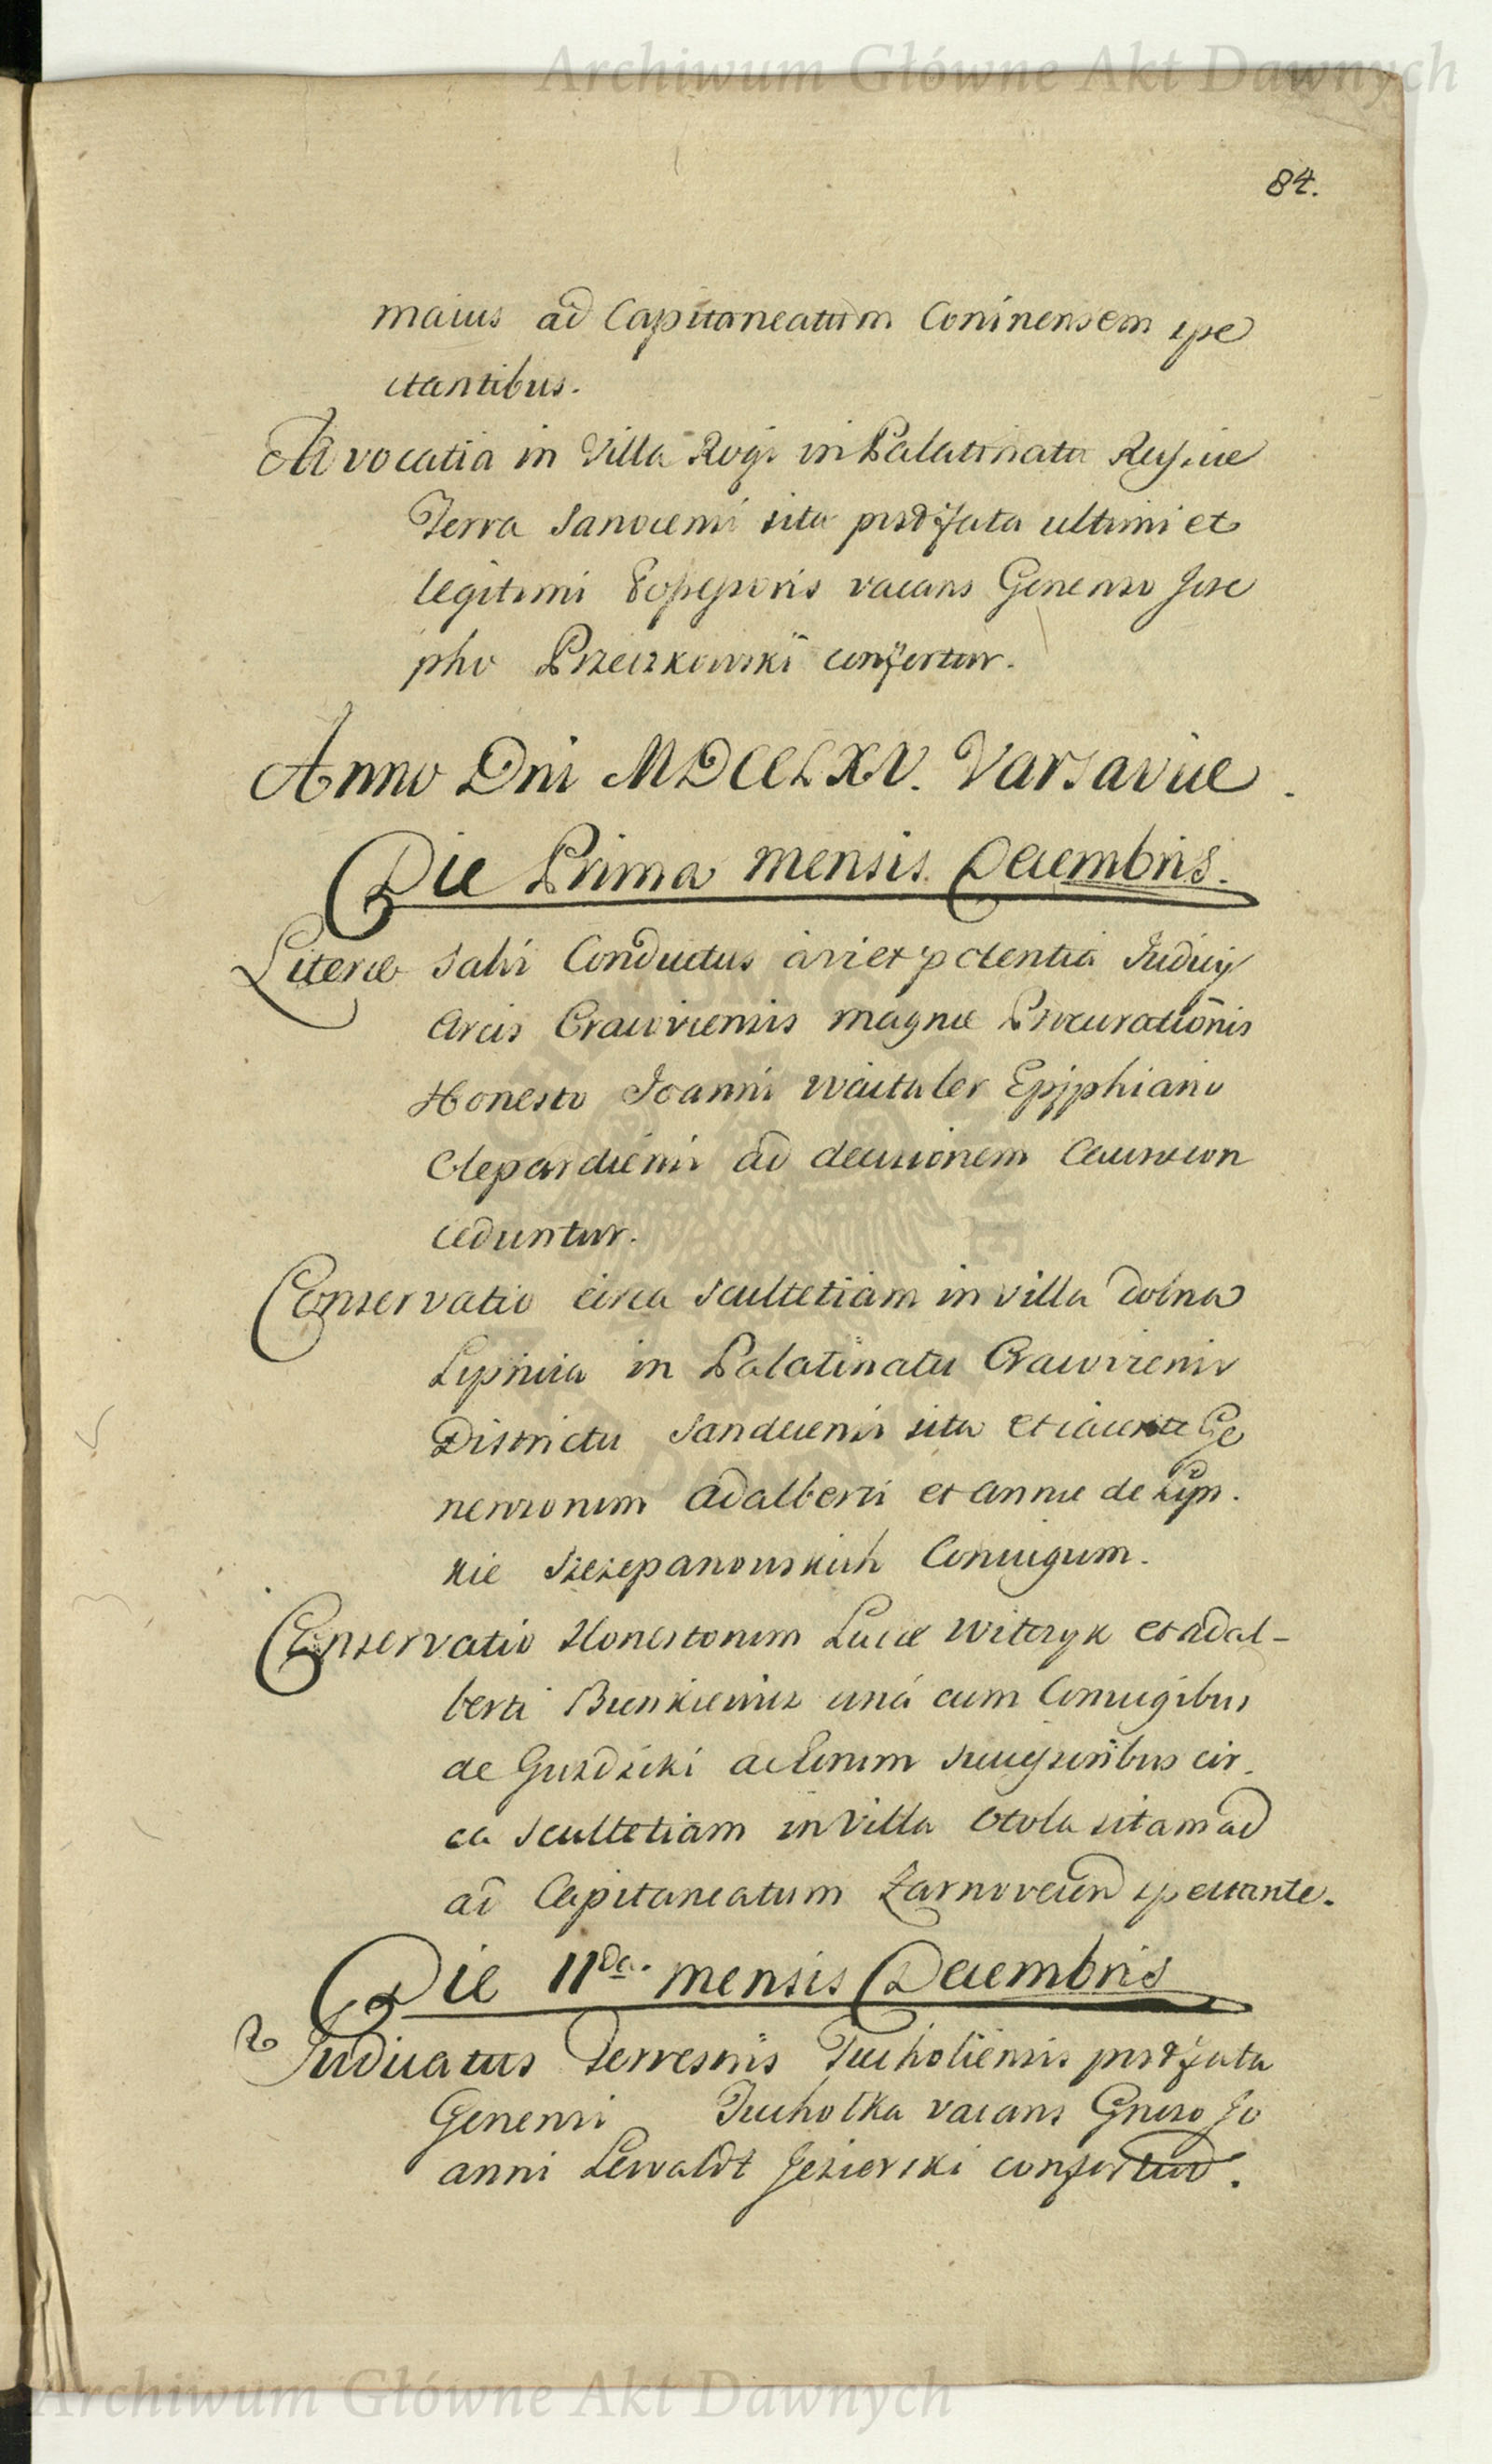 Archiwum Główne Akt Dawnych
84.
maius ad Capitaneatum Coninensem spe
ctantibus.
Advocatia in Villa Rogi in Palatinatu Russiæ
Terra Sanocensi sita post fata ultimi et
legitimi Possessoris vacans Generoso Jose
pho Przeczkowski confertur.
Anno Dni MDCCLXV. Varsaviæ.
Die Prima mensis Decembris.
Literæ Salvi Conductus a vi et potentia Judicij
Arcis Cracoviensis magnæ Procurationis
Honesto Joanni Epjphiano
Clepardiensi ad decisionem Causæ con
ceduntur.
Conservatio circa Scultetiam in villa dolna
Lipnica in Palatinatu Cracoviensi
Districtu Sandecensi sita et iacente Ge
nerosorum Adalberti et Annæ de Lip.
kie Szczepanowskich Coniugum.
Conservatio Honestorum Lucæ Witczyk et Adal-
berti Bienkiewicz unà cum Coniugibus
ac Guzdzicki ac eorum Successoribus cir
ca Scultetiam in Villa Otola sitam ad
ad Capitaneatum Zarnovecen spectante.
Die 11da. mensis Decembris
Judicatus Terrestris Tucholiensis post fata
Generosi Tucholka vacans Gneroso Jo
anni Lewaldt Jezierski confertur.
Archiwum Główne Akt Dawnych